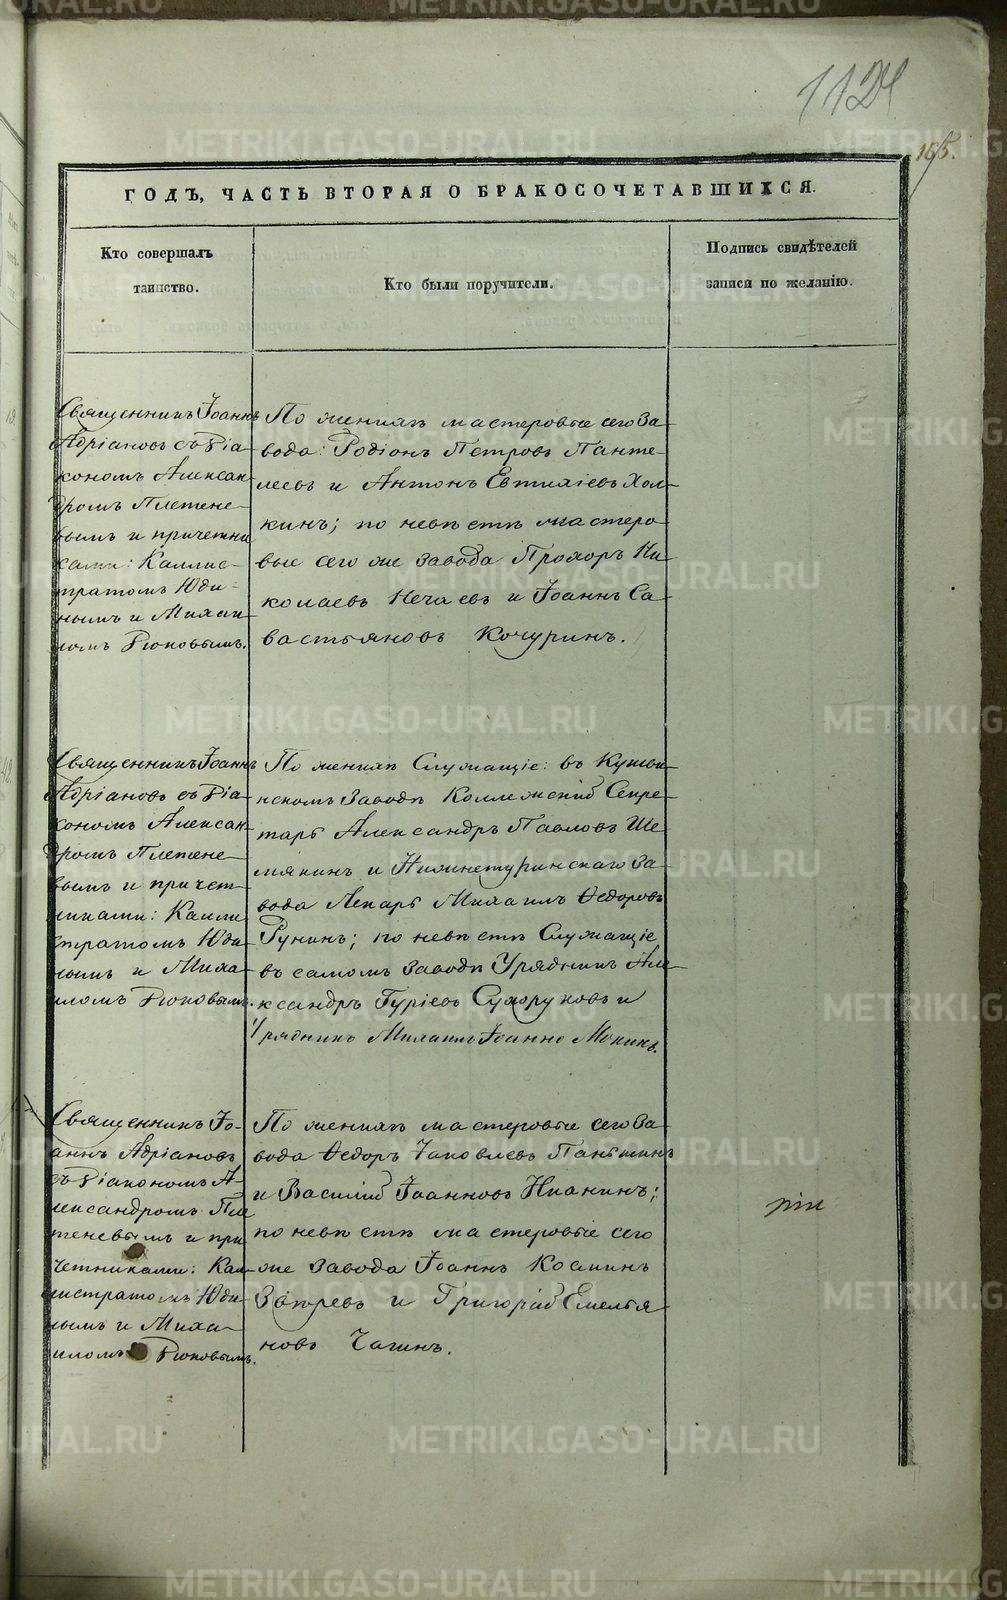 1124
165.
ГОДЪ, ЧАСТЬ ВТОРАЯ О БРАКОСОЧЕТАВШИХСЯ.
Кто совершалъ
таинство.
Кто были поручители.
Подпись свидѣтелей
записи по желанію.
Священникъ Іоаннъ
Адріановъ съ Діа-
кономъ Алексан-
дромъ Плетене-
вымъ и причетни
ками: Каллис-
тратомъ Юди-
нымъ и Михаи
ломъ Рюковымъ.
По женихѣ мастеровые сего За-
вода: Родіонъ Петровъ Панте-
леевъ и Антонъ Евтихіевъ Хол-
кинъ; по невѣстѣ мастеро-
вые сего же завода Прохоръ Ни-
колаевъ Нечаевъ и Іоаннъ Са-
вастьяновъ Кочуринъ.
Священникъ Іоаннъ
Адріановъ съ Діа-
кономъ Алексан-
дромъ Плетене-
вымъ и причет-
никами: Калли
стратомъ Юди-
нымъ и Миха-
иломъ Рюковымъ.
По женихѣ Служащіе: въ Кушви-
нскомъ Заводѣ Коллежскій Секре-
тарь Александръ Павловъ Ше-
мякинъ и Нижнетуринскаго За-
вода Лекарь Михаилъ Ѳедоровъ
Рунинъ; по невѣстѣ Служащіе
въ самомъ заводѣ Урядникъ Але-
ксандръ Гуріевъ Сухоруковъ и
Урядникъ Михаилъ Іоанно Мокинъ.
Священникъ Іо-
аннъ Адріановъ
съ Діакономъ А-
лександромъ Пле
теневымъ и при
четниками: Кал-
листратомъ Юди-
нымъ и Миха-
иломъ Рюковымъ.
По женихѣ мастеровые сего За-
вода Ѳедоръ Яковлевъ Паньшинъ
и Василій Іоанновъ Ніанинъ;
по невѣстѣ мастеровые сего
же завода Іоаннъ Косминъ
Звѣревъ и Григорій Емелья-
новъ Чагинъ.